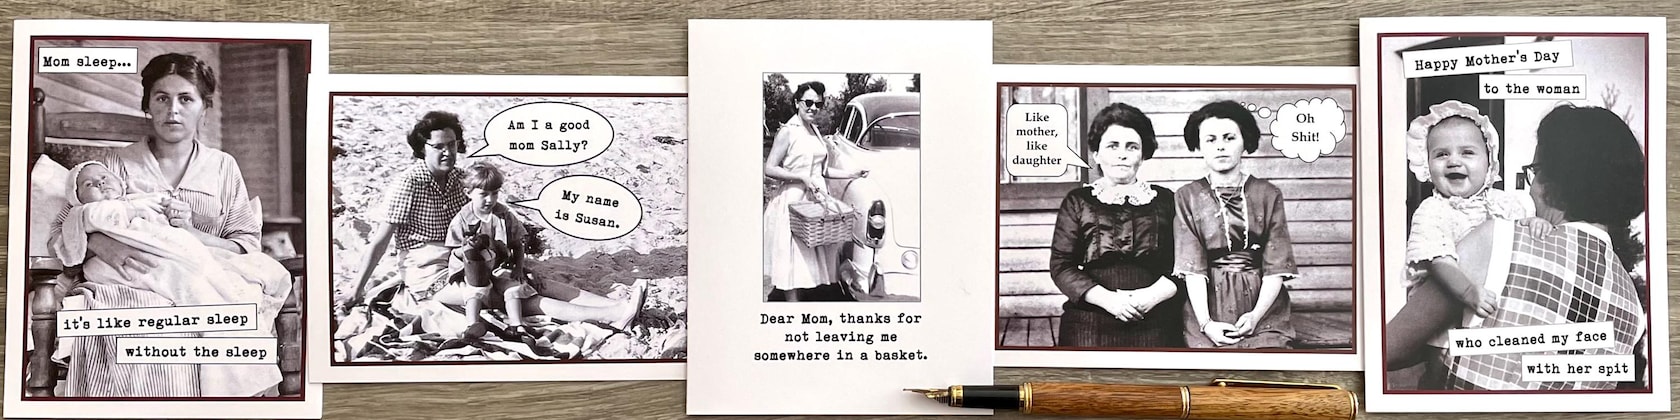 Mom sleep...
it's like regular sleep
without the sleep
Am I a good
mom Sally?
My name
is Susan.
Dear Mom, thanks for
not leaving me
somewhere in a basket.
Like
mother,
like
daughter
Oh
Shit!
Happy Mother's Day
to the woman
who cleaned my face
with her spit